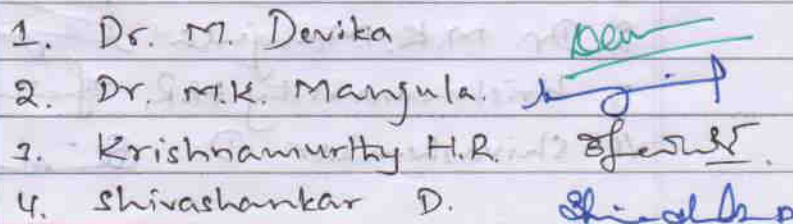 1. Dr. M. Devika
2. Dr. M.K. Manjula.
3. Krishnamurthy H.R.
4. Shivashankar D.